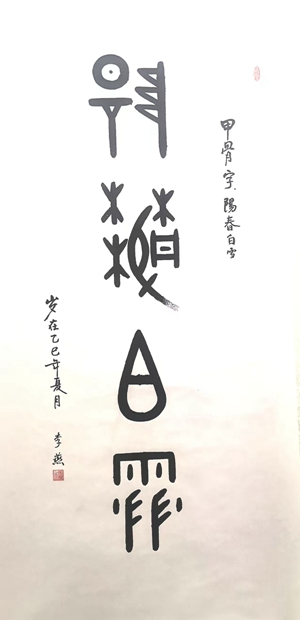 陽春白雪
甲骨字、陽春白雪
岁在乙巳年夏月
李燕